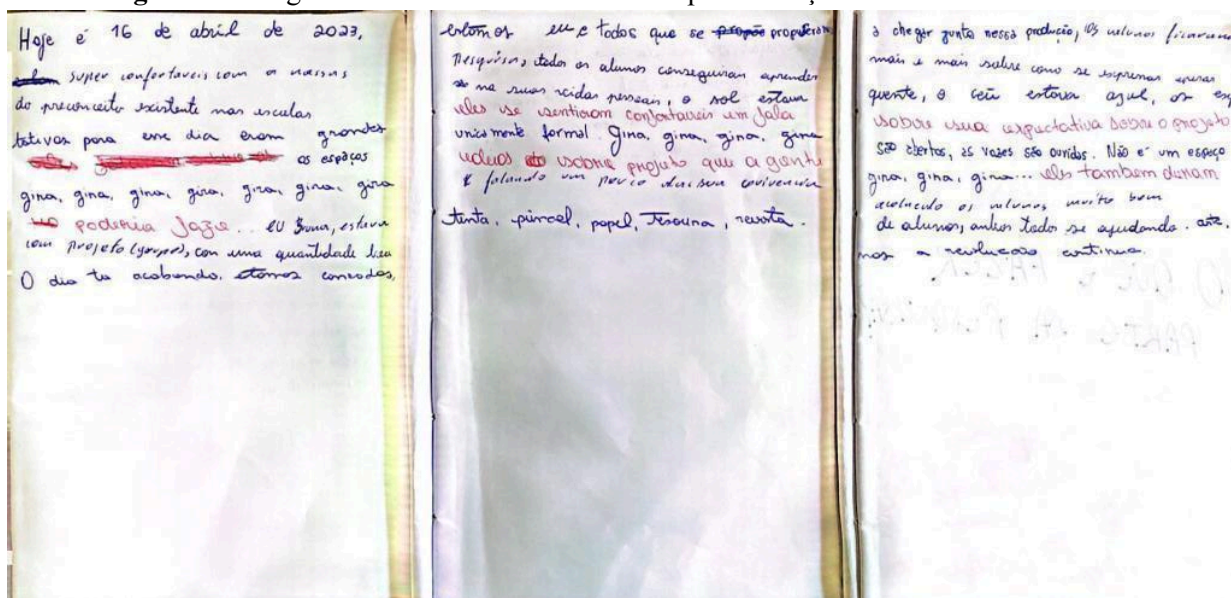 Hoje é 16 de abril de 2023,
super confortaveis com a nossas
do preconceito existente nas escolas
tativas para esse dia eram grandes
os espaços
gina, gina, gina, gina, gina, gina, gina
poderia fazer.. EU Bruna, estava
com projeto (grupo), com uma quantidade boa
O dia ta acabando. estamos cansados,
estamos eu e todos que se propuseram
Pesquisas, todos os alunos conseguiram aprender
na suas vidas pessoais, o sol estava
eles se sentiram confortaveis um fala
unicamente formal. Gina, gina, gina, gina
sobre projeto que a gente
é falando um pouco da sua convivencia
tinta, pincel, papel, Tesoura, revista.
a chegar junto nessa produção, Os alunos ficaram
mais e mais sobre como se expressar
quente, o céu estava azul, os es
sobre sua expectativa sobre o projeto
são abertos, as vozes são ouvidas. Não é um espaço
gina, gina, gina... eles tambem deram
os alunos muito bem
de alunos, ambos todos se ajudando. arte,
mos a revolução continua.